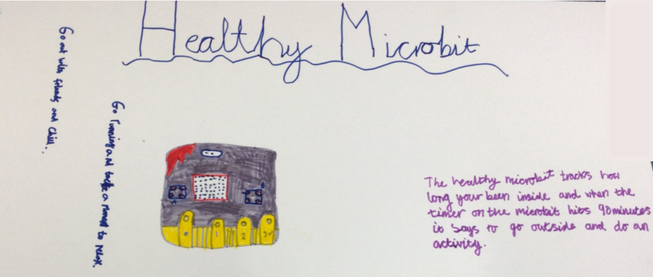 Healthy Microbit
Go out with friends and chill.
Go running and take a moment to relax.
The healthy microbit tracks how
long your been inside and when the
timer on the microbit hits 90 minutes
is says to go outside and do an
activity.